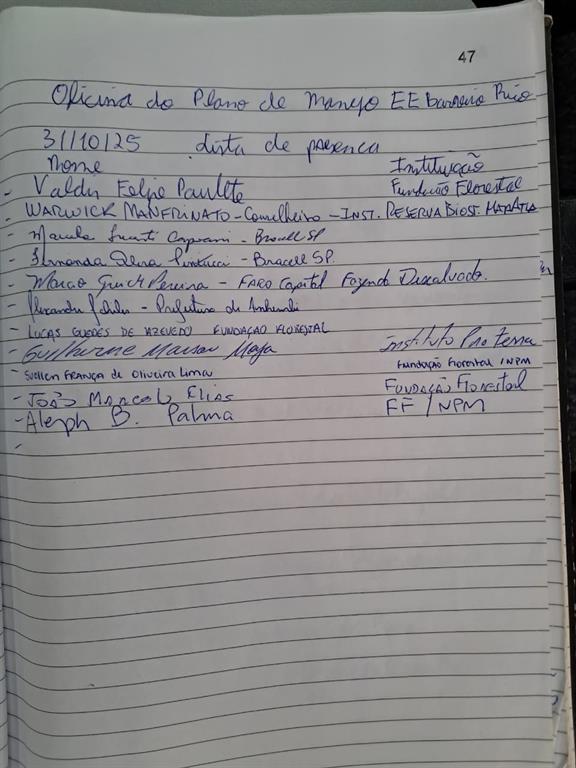 47
Oficina do Plano de Manejo EE Barreiro Rico
31/10/25 Lista de presença
Nome Instituição
- Valdir Felipe Paulete Fundação Florestal
- WARWICK MANFRINATO - Conselheiro - INST. RESERVA BIOSF. MATATLA
- Bracell SP
- Fernanda - Bracell SP.
- Marcio Pereira - FARO Capital Fazenda Descalvado.
- Alexandre - Prefeitura de Anhembi
- LUCAS GUEDES DE AZEVEDO FUNDAÇÃO FLORESTAL
- Guilherme Instituto Pro Terra
- SUELLEN FRANÇA de OLIVEIRA Lima FUNDAÇÃO FLORESTAL / NPM
- JOÃO MARCELO ELIAS FUNDAÇÃO FLORESTAL
- Aleph B. Palma FF / NPM
-